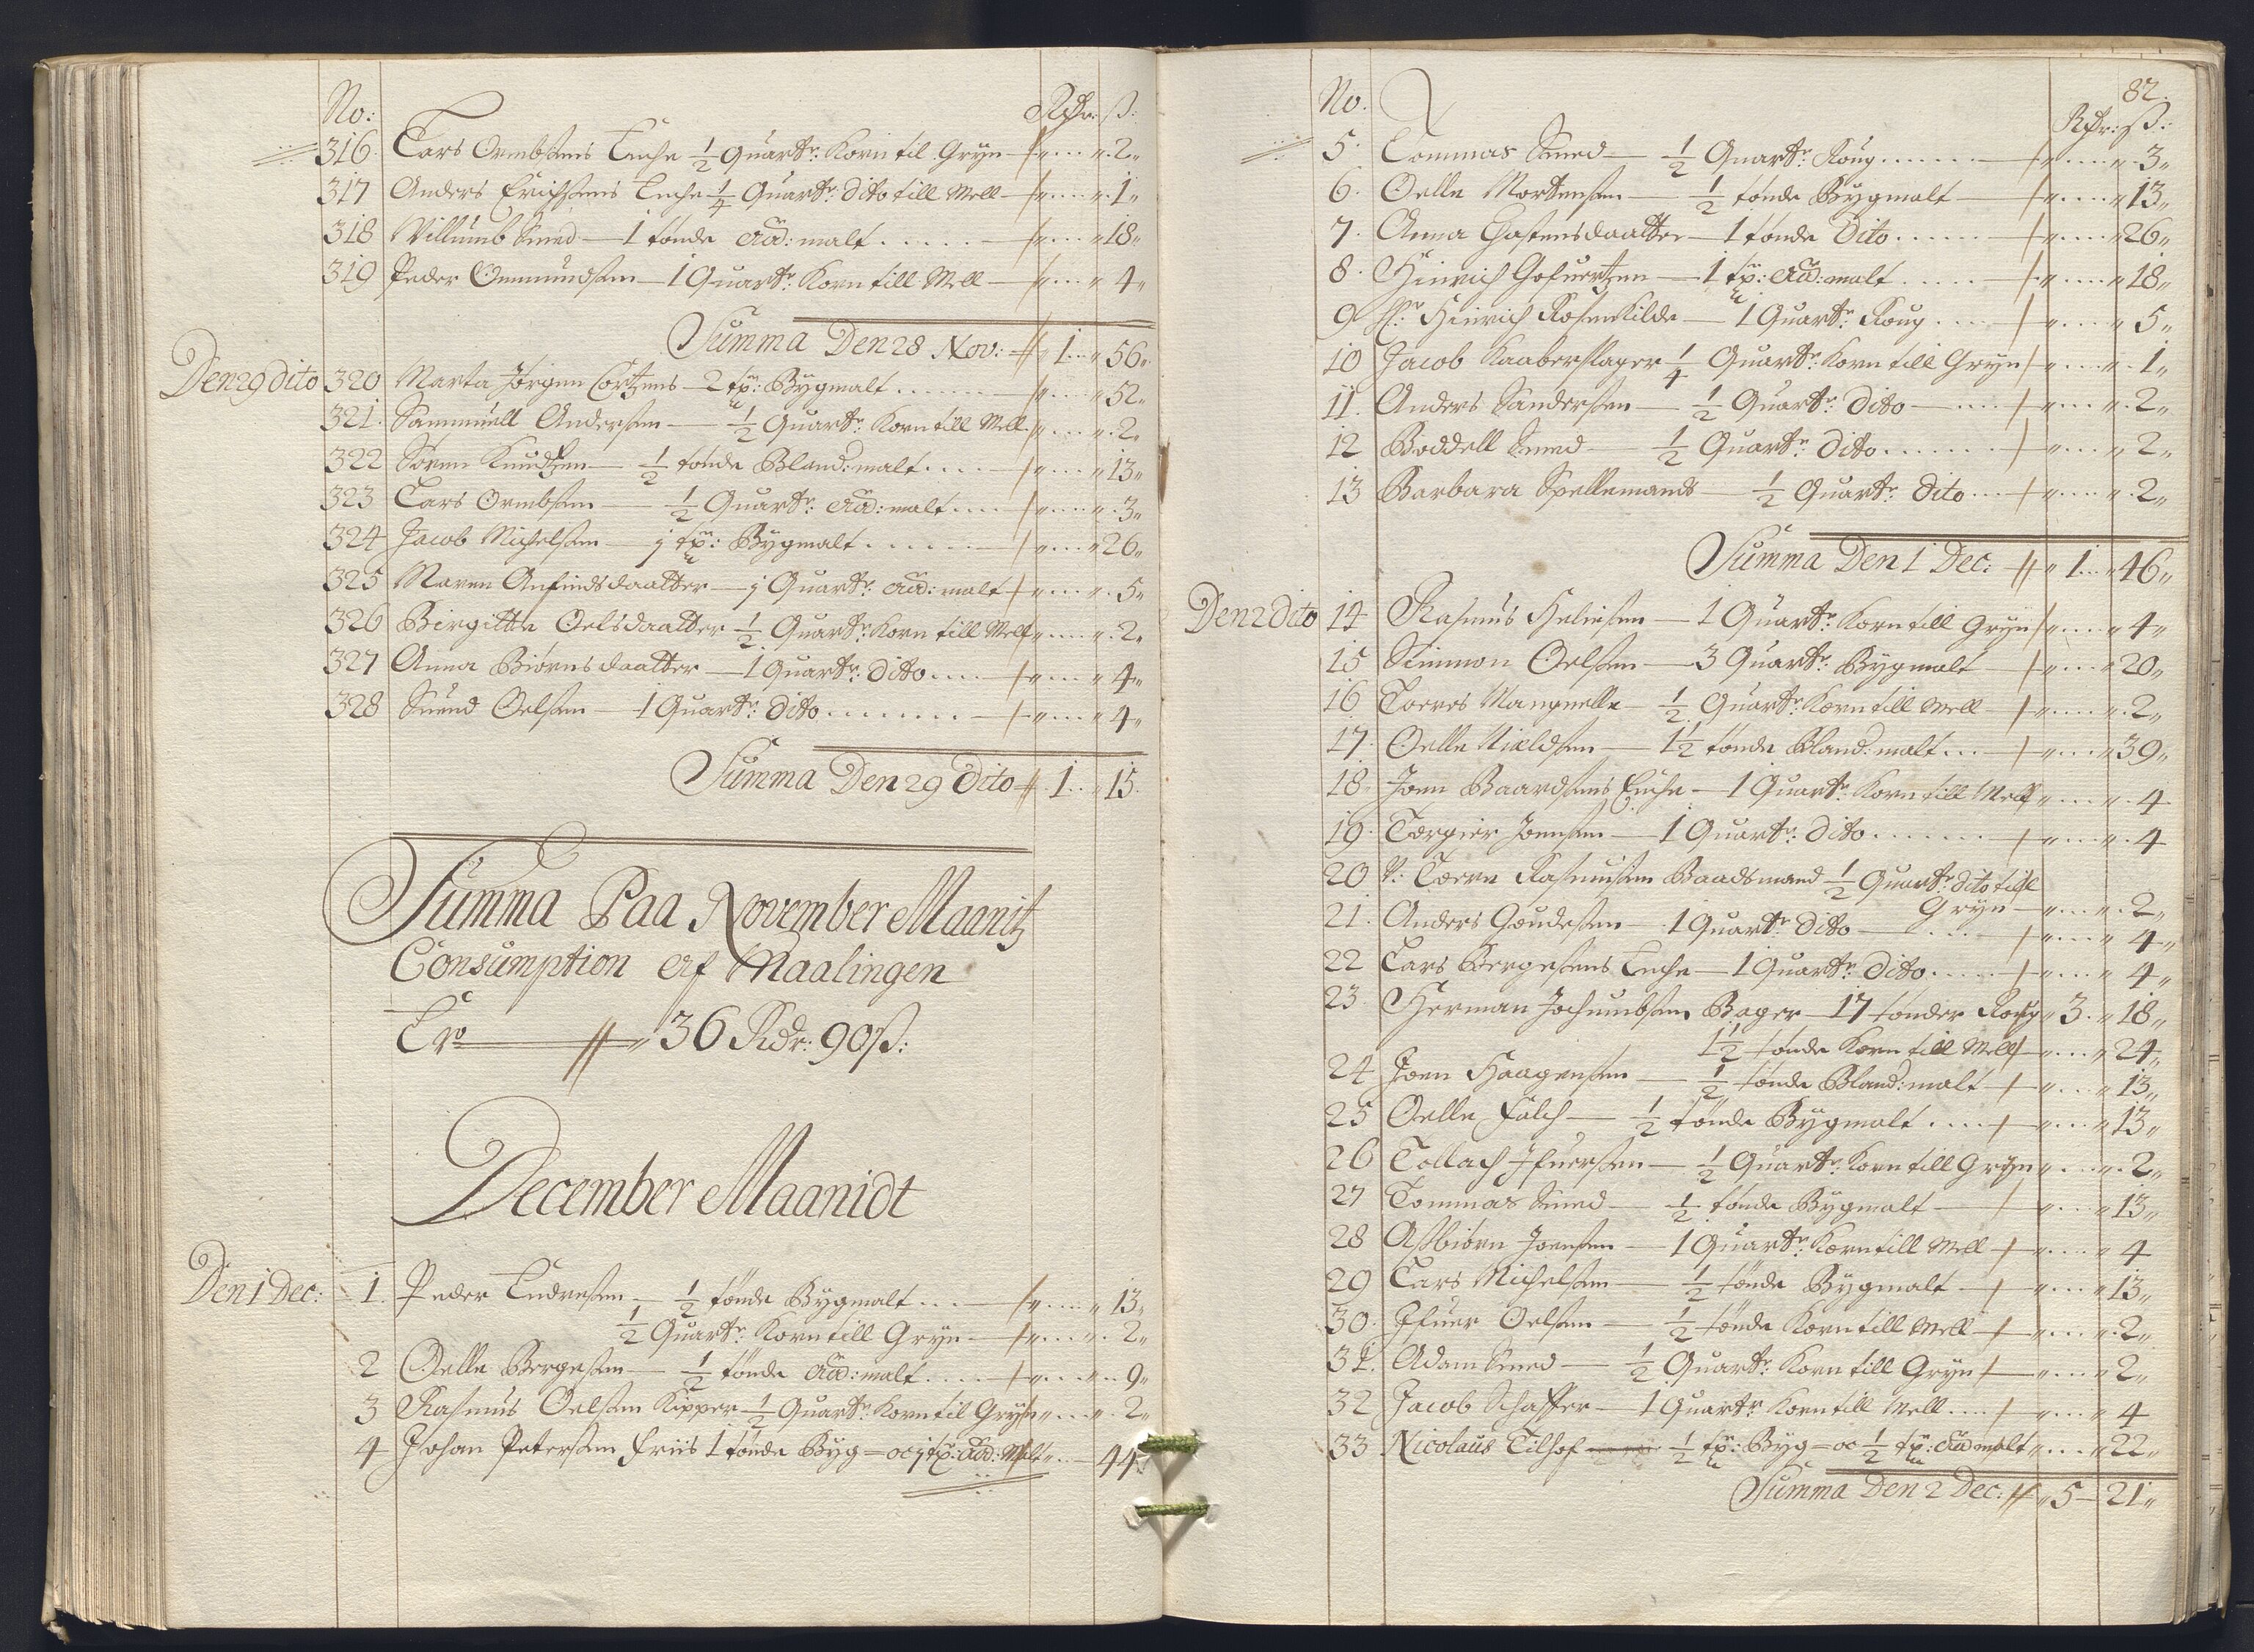 No: Rdr: ß:
316 Lars Ormbsens Enche ½ Quartr: Korn til Gryn „ „ 2„
317 Anders Erichsens Enche ¼ Quartr: dito till Mell „ „ 1„
318 Villumb Smed 1 tønde ad: malt „ „ 18„
319 Peder Ommundsen 1 Quartr: Korn till Mell „ „ 4„
Summa Den 28 Nov: „ 1 „ 56„
Den 29 dito 320 Marta Jørgen Cortzens 2 tr: Bygmalt „ „ 52„
321 Sammuell Andersen ½ Quartr: Korn till Mell „ „ 2„
322 Søren Knudtzen ½ tønde Bland: malt „ „ 13„
323 Lars Ormbsen ½ Quartr: ad: malt „ „ 3„
324 Jacob Michelsen j tr: Bygmalt „ „ 26„
325 Maren Anfindsdaatter j Quartr: ad: malt „ „ 5„
326 Birgitte Oelsdaatter ½ Quartr: Korn till Mell „ „ 2„
327 Anna Biørnsdaatter 1 Quartr: dito „ „ 4„
328 Suend Oelsen 1 Quartr: dito „ „ 4„
Summa Den 29 Dito 1 „ 15
Summa Paa November Maanitz
Consumption af Maalingen
Er „ 36 Rdr: 90 ß:
December Maanidt
Den 1 Dec: 1 Peder Endresen ½ tønde Bygmalt „ „ 13„
½ Quartr: Korn till Gryn „ „ 2„
2 Oelle Bergesen ½ tønde ad: malt „ „ 9„
3 Rasmus Oelsen Kipper ½ Quartr: Korn til Gryn „ „ 2„
4 Johan Petersen Friis 1 tønde Byg = oc j tr: ad: Malt „ 44
82.
No. Rdr: ß:
5 Tommas Smed ½ Quartr: Roug „ „ 3„
6. Oelle Mortensen ½ tønde Bygmalt „ „ 13„
7. Anna Castensdaatter 1 tønde Dito „ „ 26„
8. Hinrich Gofuertzen 1 tr: ad: malt „ „ 18„
9 Hr: Hinrich Rosenkilde 1 Quartr: Roug „ „ 5„
10 Jacob Kaaberslager ¼ Quartr: Korn till Gryn „ „ 1„
11. Anders Sandersen ½ Quartr: Dito „ „ 2„
12 Boddell Smed ½ Quartr: dito „ „ 2„
13 Barbara Spellemands ½ Quartr: dito „ „ 2„
Summa Den 1 Dec: „ 1 „ 46„
Den 2 Dito 14 Rasmus Heliesen 1 Quartr: Korn till Gryn „ „ 4„
15 Simmon Oelsen 3 Quartr: Bygmalt „ „ 20„
16 Toeres Mangnelle ½ Quartr: Korn till Mell „ „ 2„
17. Oelle Nieldsen 1½ tønde Bland: malt „ „ 39„
18. Joen Baardsens Enche 1 Quartr: Korn till Mell „ „ 4
19. Torgier Joensen 1 Quartr: dito „ „ 4
20 Toern Rasmusen Baadsmand ½ Quartr: dito till
Gryn „ „ 2„
21. Anders Goudesen 1 Quartr: dito „ „ 4„
22 Lars Bergesens Enche 1 Quartr: dito „ „ 4„
23. Herman Jochumbsen Bager 17 tønder Roug „ 3 „ 18„
1½ tønde Korn till Mell „ „ 24„
24 Joen Haagensen ½ tønde Bland: malt „ „ 13„
25 Oelle Falch ½ tønde Bygmalt „ „ 13„
26 Tollach Ifuersen ½ Quartr: Korn till Gryn „ „ 2„
27 Tommas Smed ½ tønde Bygmalt „ „ 13„
28 Asbiørn Joensen 1 Quartr: Korn till Mell „ „ 4
29 Lars Michelsen ½ tønde Bygmalt „ „ 13„
30. Ifuer Oelsen ½ tønde Korn till Mell „ „ 2„
31. Adam Smed ½ Quartr: Korn till Gryn „ „ 2„
32 Jacob Schaffer 1 Quartr: Korn till Mell „ „ 4
33 Nicolaus Tilhof ½ tr: Byg = oc ½ tr: ad malt „ „ 22„
Summa Den 2 Dec: „ 5 21„